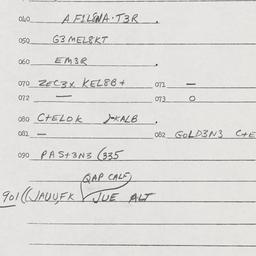 040 AFILENA·T3R .
050 G3MEL8KT
060 EM3R .
070 ZEC3X KEL8B+ 071 —
072 — 073 O
080 C+ELOK J-KALB .
081 — 082 GOLD3N3 C+E
090 PAS+3N3 (335
QAP CALF
901 ((JAUU,FK JUE ALT